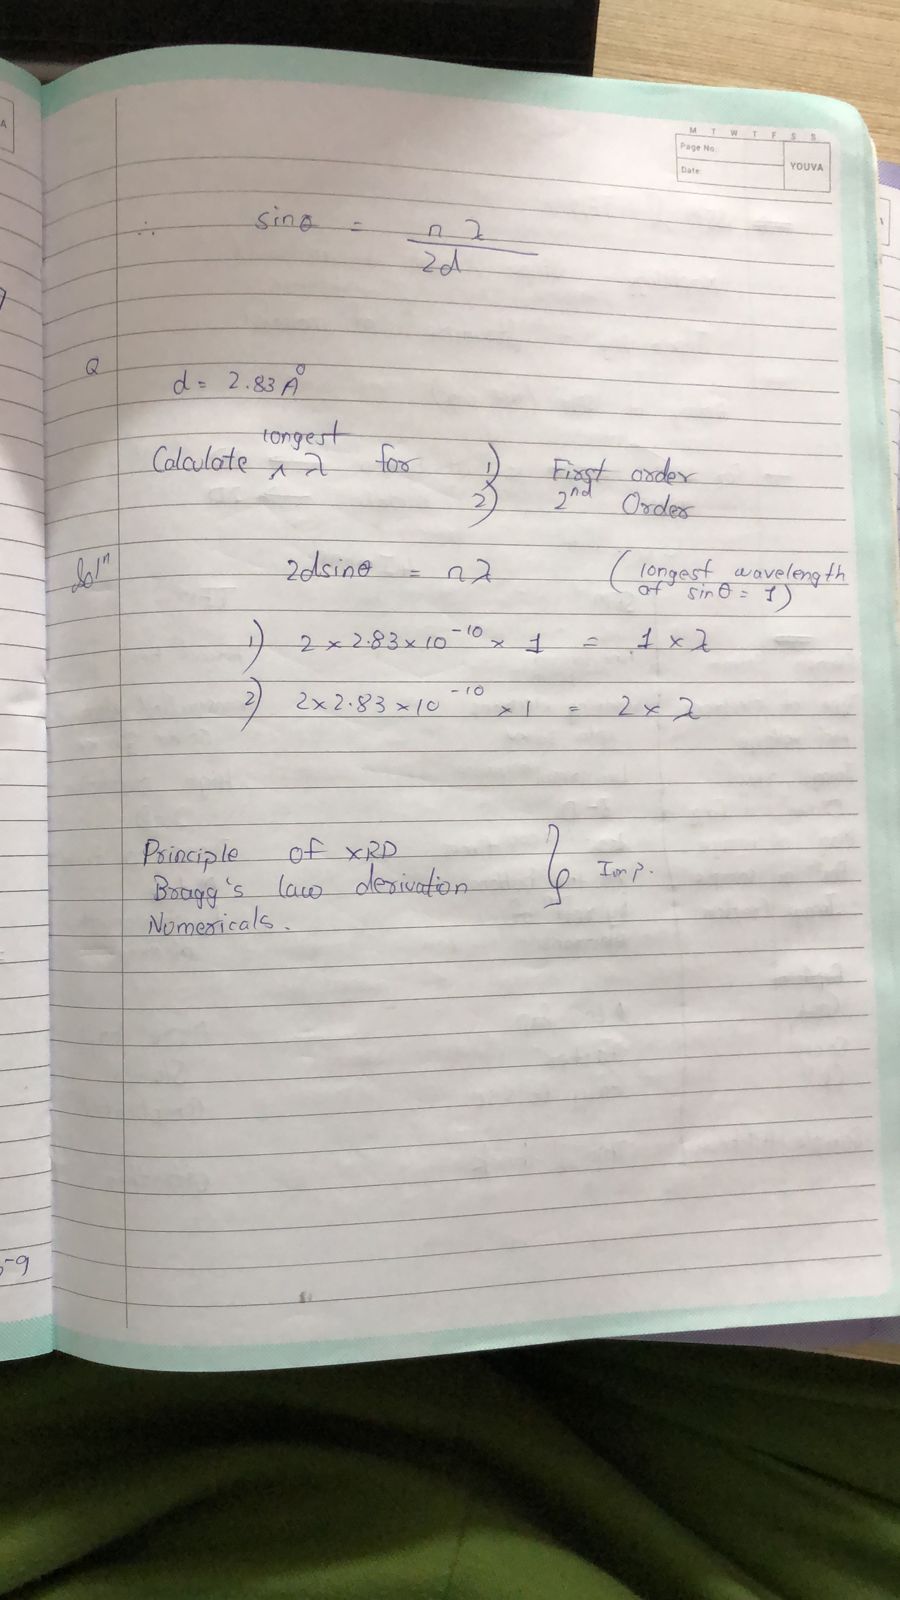 A
M T W T F S S
Page No.
Date
YOUVA
∴ sinθ = nλ
2d
Q
d = 2.83 A°
longest
Calculate ⁁ λ for 1) First order
2) 2nd Order
Solⁿ 2dsinθ = nλ (longest wavelength
at sinθ = 1)
1) 2 × 2.83 × 10⁻¹⁰ × 1 = 1 × λ
2) 2 × 2.83 × 10⁻¹⁰ × 1 = 2 × λ
Principle of XRD
Bragg's law derivation } Imp.
Numericals.
-9